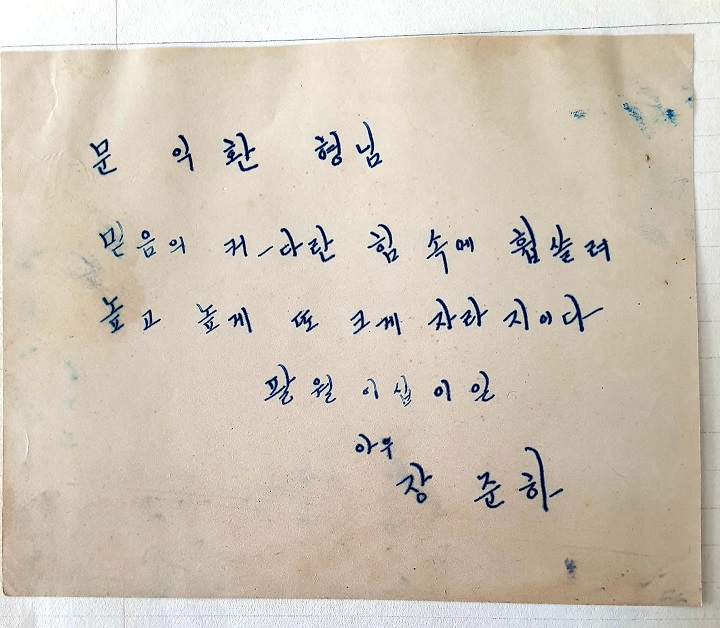 문 익 환 형님
믿음의 커-다란 힘 속에 휩쓸려
높고 높게 또 크게 자라지이다
팔월 이십이일
아우
장 준하